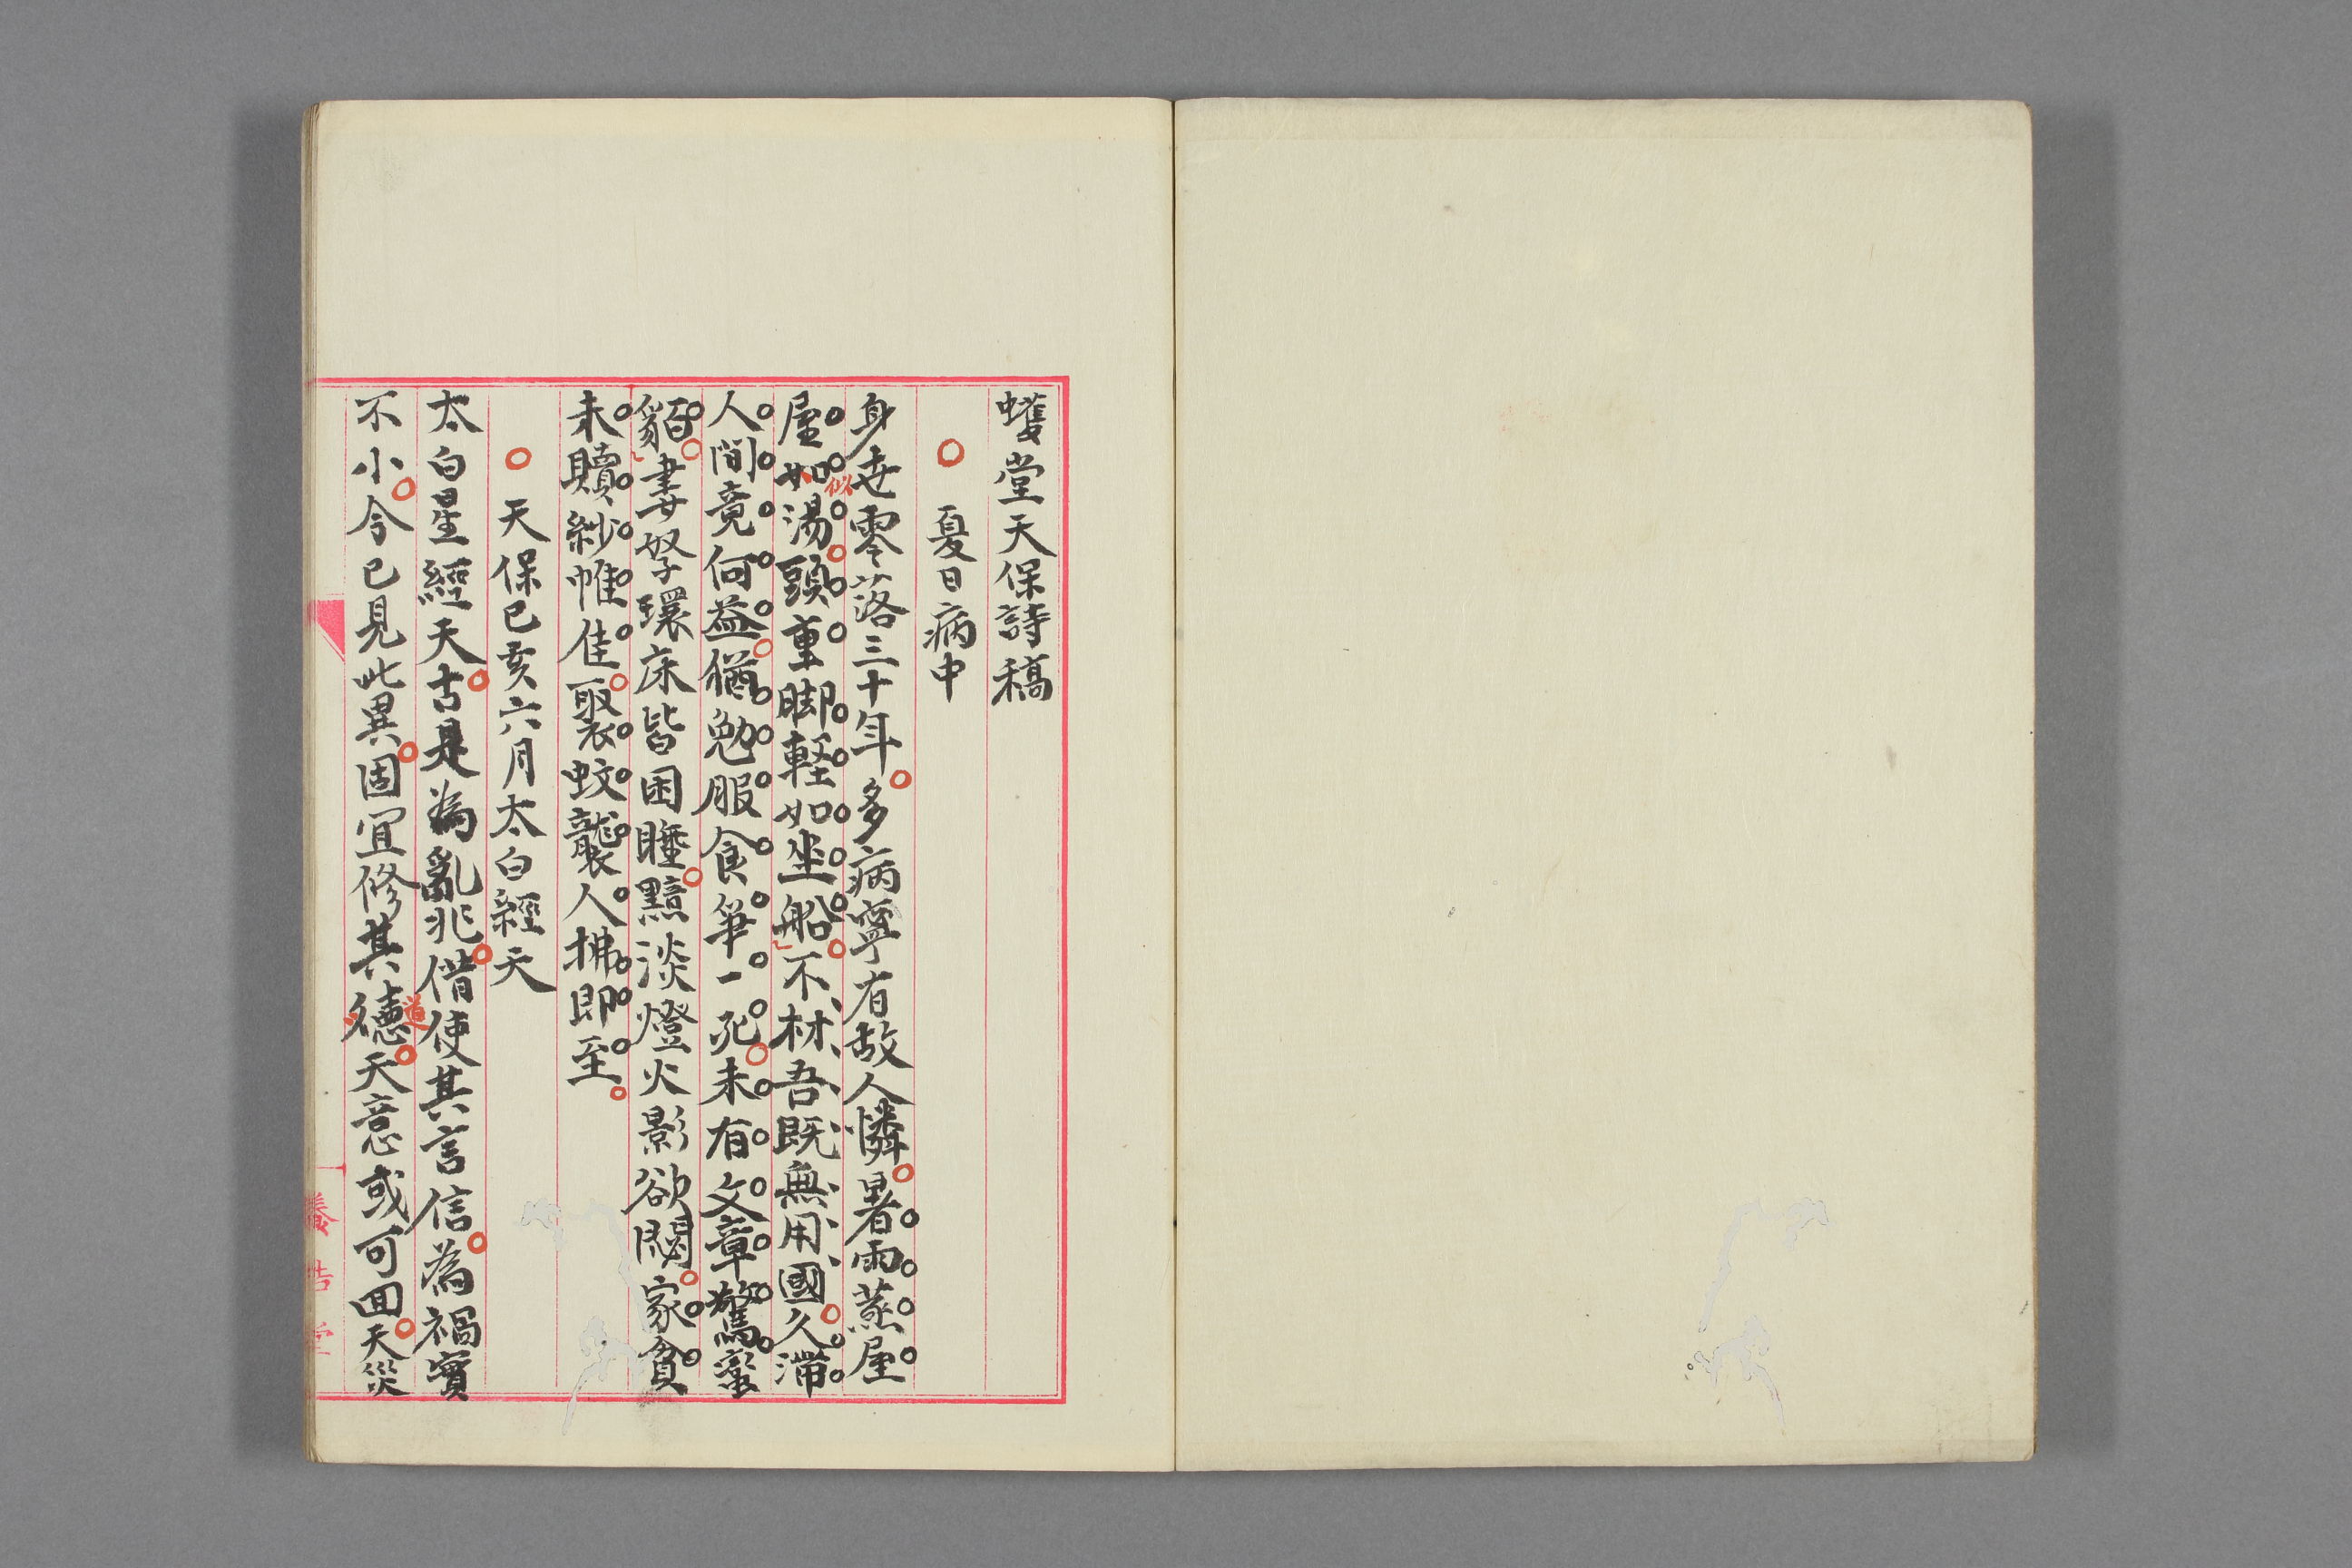 蠖堂天保詩稿
夏日病中
身世零落三十年多病寧有故人憐暑雨蒸屋
屋如湯頭重脚軽如坐船不材吾既無用國久滞
似
人間竟何益猶勉服食争一死未有文章驚蛮
貊妻孥環床皆困睡黯淡燈火影欲闃家貧
未贖紗帷佳聚蚊襲人拂即至
天保己亥六月太白經天
太白星經天古是為亂兆借使其言信為禍實
不小今已見此異固宜修其德天意或可回天災
道